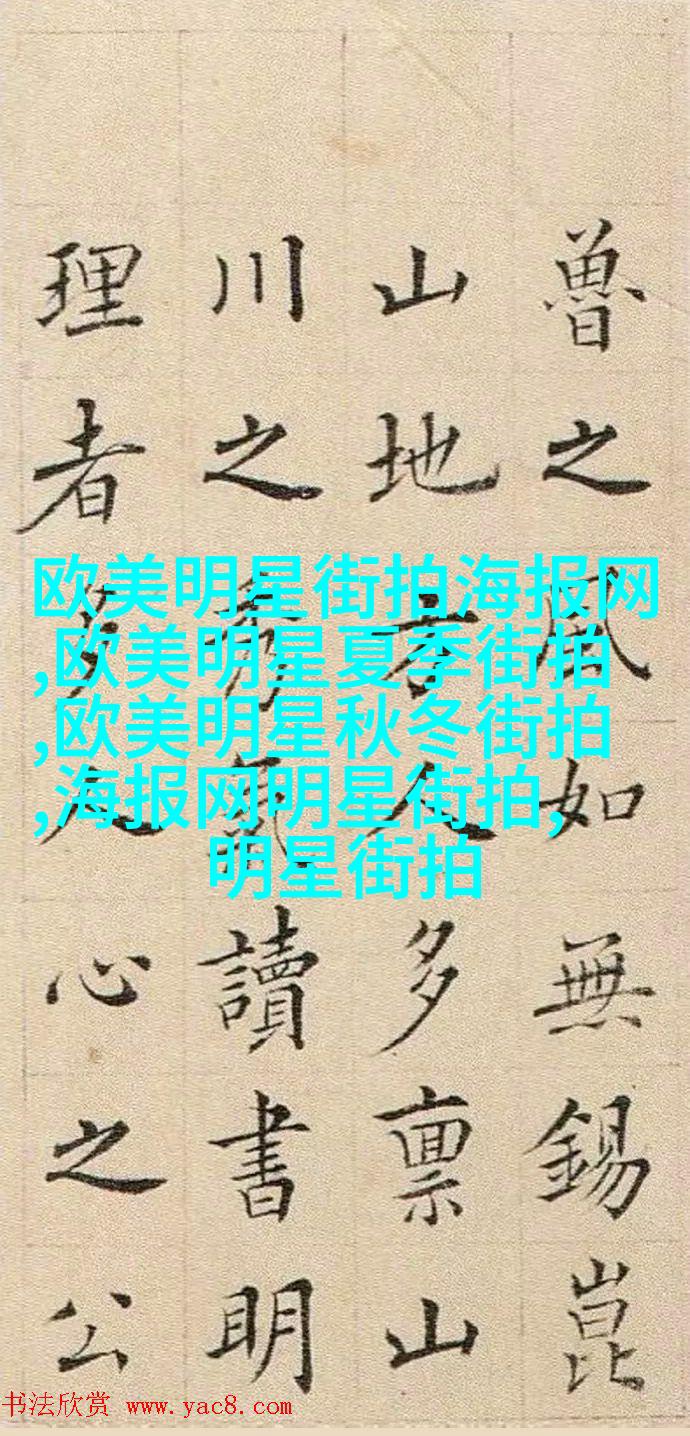 魯之風如無錫崑
山地人多禀山
川之秀氣讀書明
理者多人心之公
欧美明星街拍海报网
,欧美明星夏季街拍
,欧美明星秋冬街拍
,海报网明星街拍,
明星街拍
书法欣赏 www.yac8.com